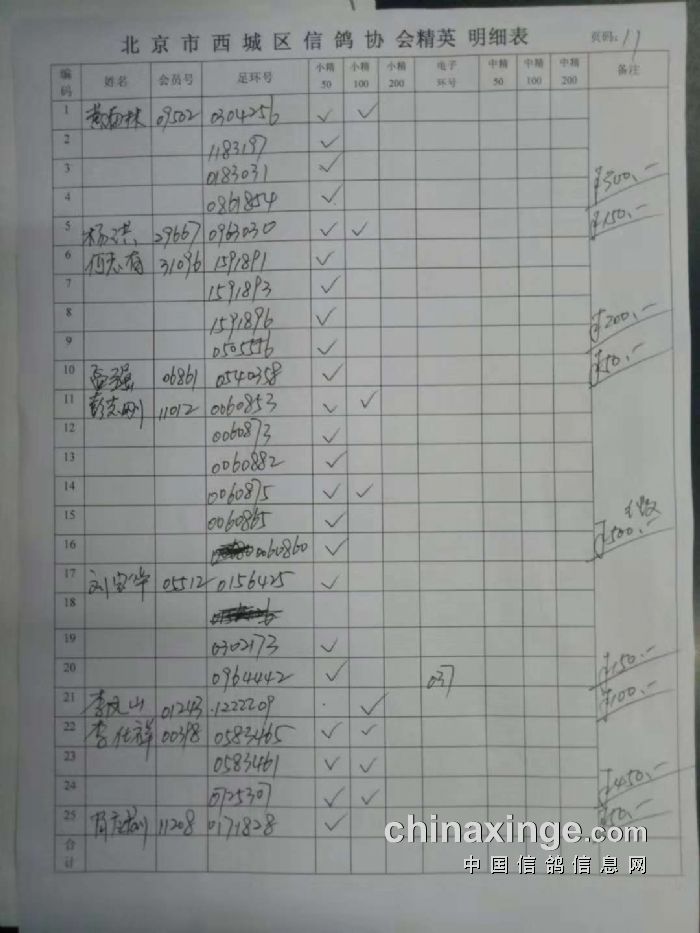 北京市西城区信鸽协会精英 明细表 页码: 17
编码 姓名 会员号 足环号 小精50 小精100 小精200 电子环号 中精50 中精100 中精200 备注
1 09502 0304256 ✓ ✓
2 1183197 ✓
3 0183031 ✓
4 0861854 ✓ ¥300.-
5 杨洪 29667 0963030 ✓ ✓ ¥150.-
6 何志有 31096 1591891 ✓
7 1591893 ✓
8 1591896 ✓
9 0505556 ✓ ¥200.-
10 06861 0540358 ✓ ¥50.-
11 彭志刚 11012 0060853 ✓ ✓
12 0060873 ✓
13 0060882 ✓
14 0060875 ✓ ✓
15 0060865 ✓
16 0060860 ✓ ¥500.-
17 05512 0156425 ✓
18
19 0302173 ✓
20 0964442 ✓ 037 ¥150.-
21 01243 1222209 ✓ ¥100.-
22 李仕祥 00318 0583465 ✓ ✓
23 0583461 ✓ ✓
24 0725307 ✓ ✓ ¥450.-
25 11208 0171828 ✓ ¥50.-
合计
chinaxinge.com
中国信鸽信息网